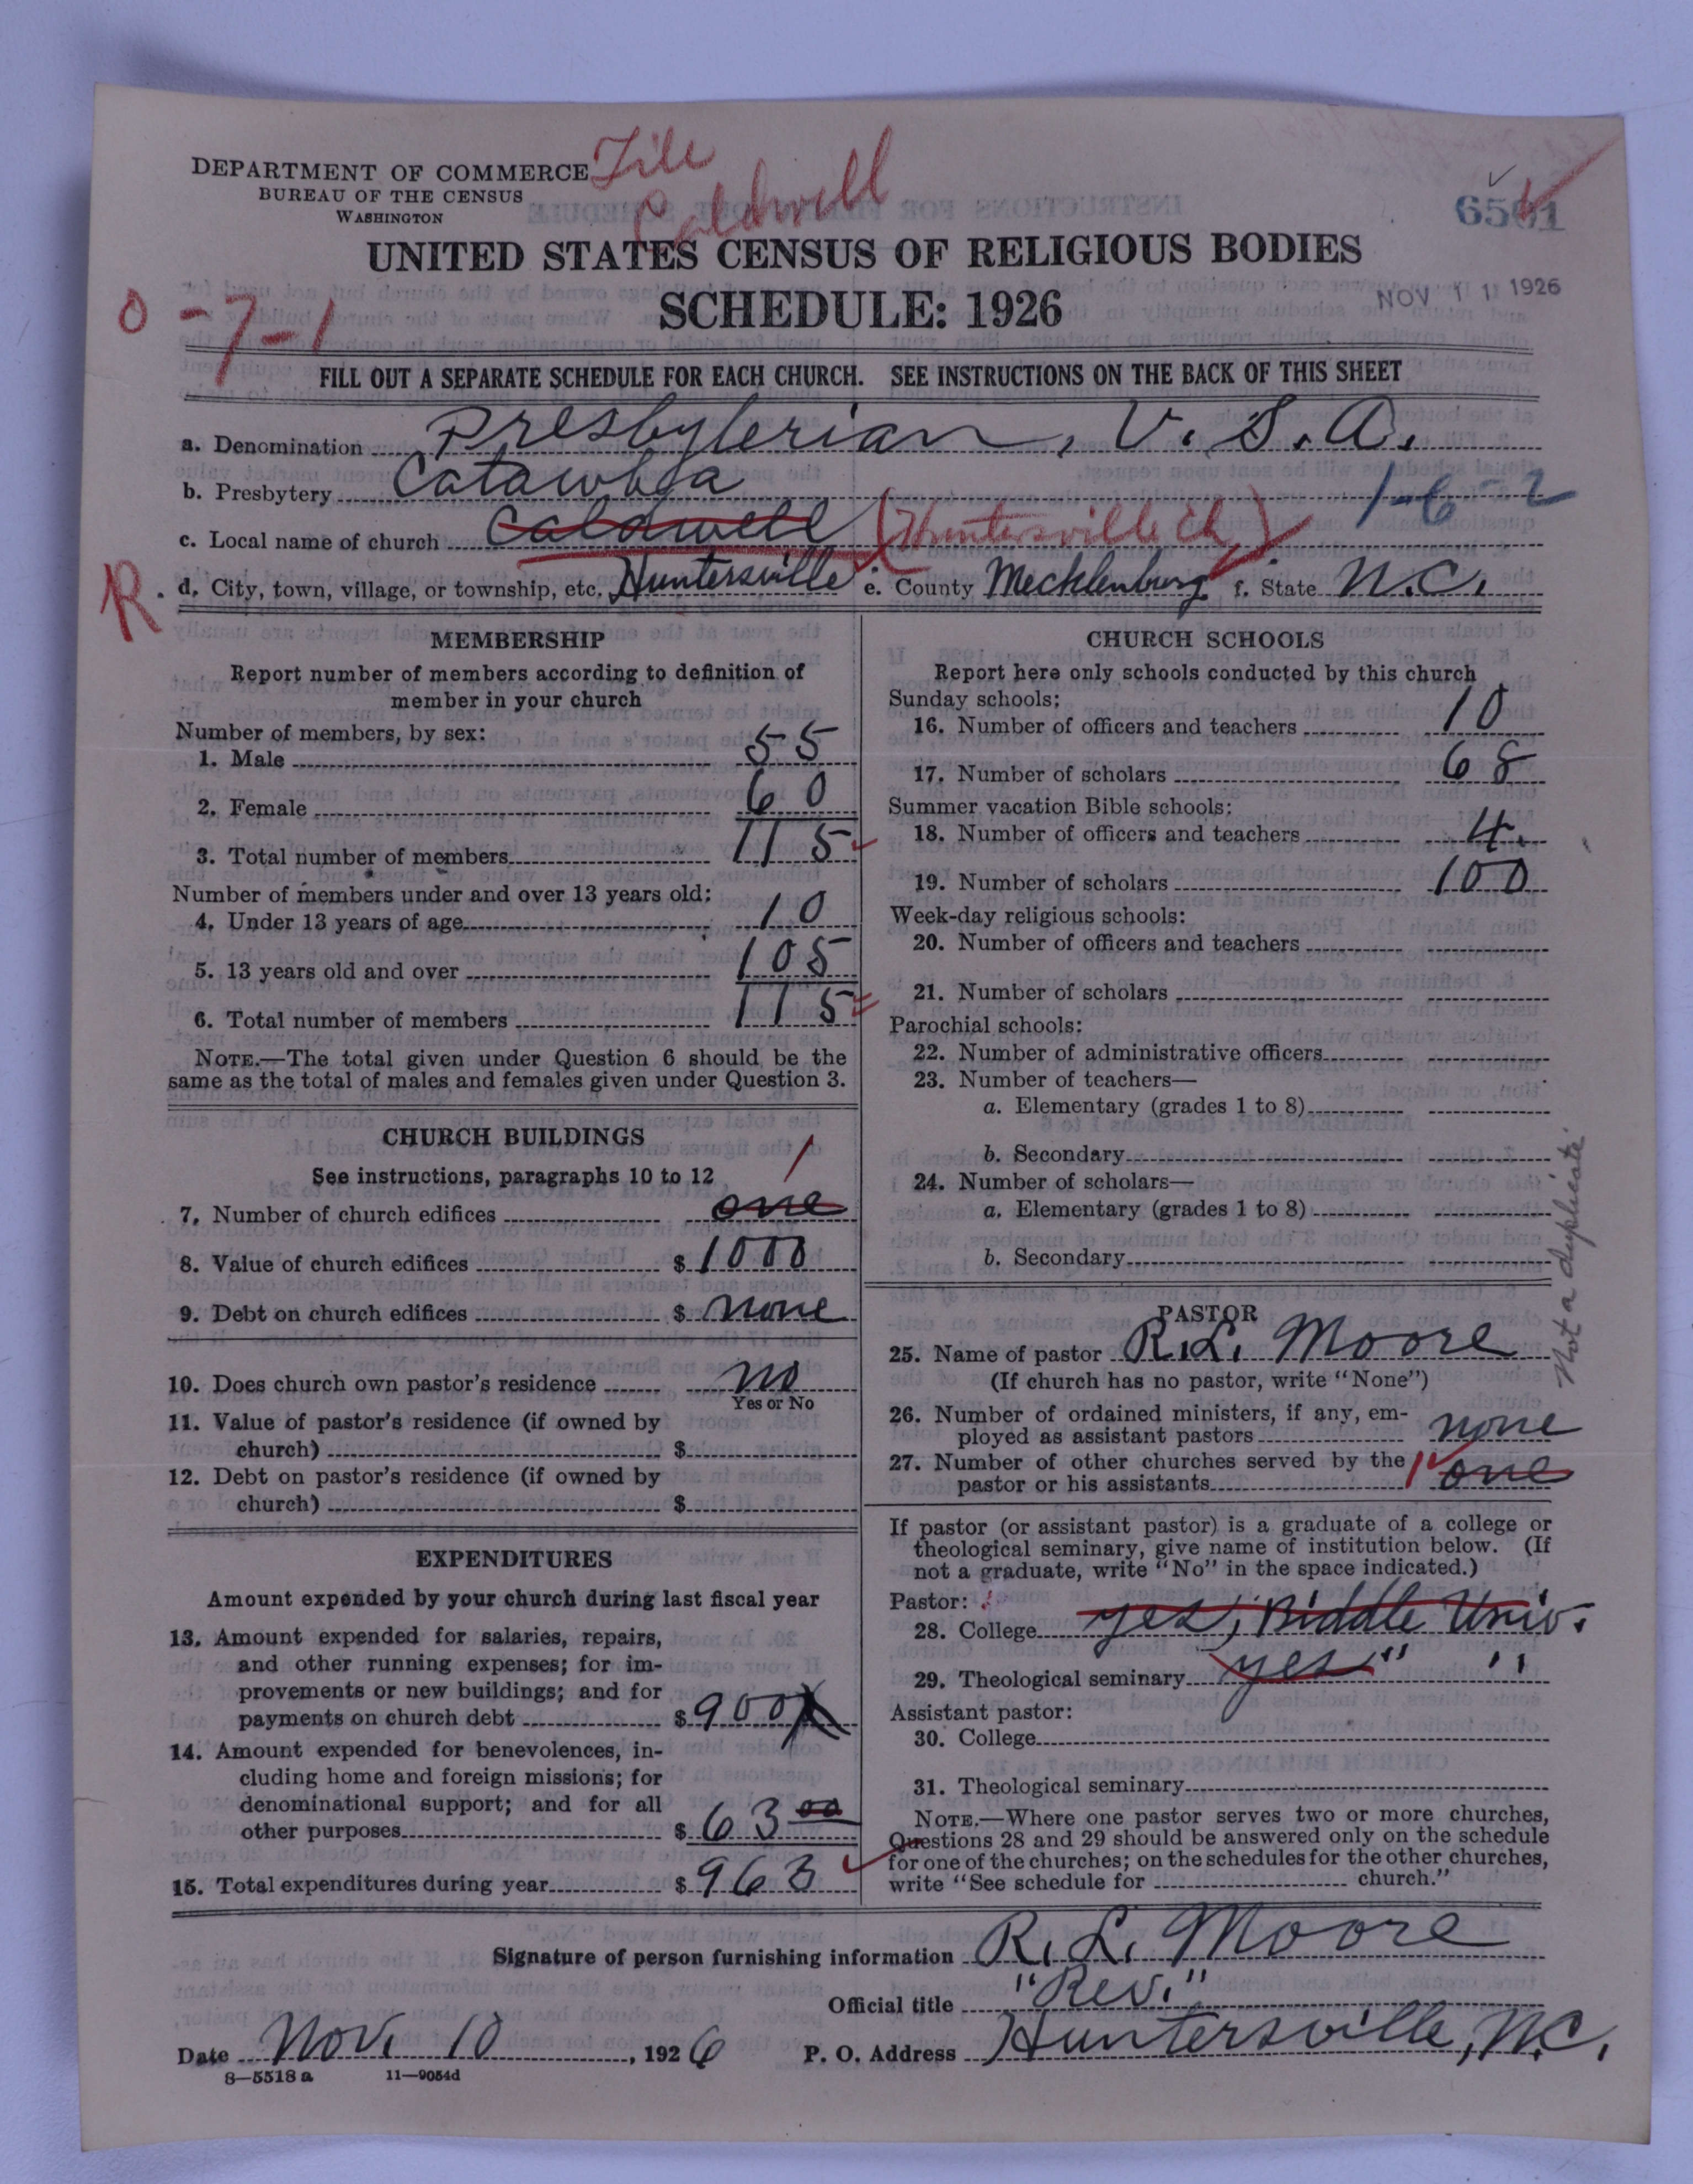 File
Caldwell
DEPARTMENT OF COMMERCE
BUREAU OF THE CENSUS
WASHINGTON
UNITED STATES CENSUS OF RELIGIOUS BODIES
SCHEDULE: 1926
NOV 11 1926
0-7-1
FILL OUT A SEPARATE SCHEDULE FOR EACH CHURCH. SEE INSTRUCTIONS ON THE BACK OF THIS SHEET
a. Denomination Presbyterian, U.S.A.
b. Presbytery Catawba
1-6-2
c. Local name of church Caldwell (Huntersville Ch)
R
d. City, town, village, or township, etc. Huntersville e. County Mecklenburg f. State N.C.
MEMBERSHIP
Report number of members according to definition of
member in your church
Number of members, by sex:
1. Male 55
2. Female 60
3. Total number of members 115
Number of members under and over 13 years old:
4. Under 13 years of age 10
5. 13 years old and over 105
6. Total number of members 115
NOTE.—The total given under Question 6 should be the
same as the total of males and females given under Question 3.
CHURCH BUILDINGS
See instructions, paragraphs 10 to 12
1
7. Number of church edifices one
8. Value of church edifices $ 1000
9. Debt on church edifices $ none
10. Does church own pastor's residence no
Yes or No
11. Value of pastor's residence (if owned by
church) $
12. Debt on pastor's residence (if owned by
church) $
EXPENDITURES
Amount expended by your church during last fiscal year
13. Amount expended for salaries, repairs,
and other running expenses; for im-
provements or new buildings; and for
payments on church debt $ 900
14. Amount expended for benevolences, in-
cluding home and foreign missions; for
denominational support; and for all
other purposes $ 63 00
15. Total expenditures during year $ 963
CHURCH SCHOOLS
Report here only schools conducted by this church
Sunday schools:
16. Number of officers and teachers 10
17. Number of scholars 68
Summer vacation Bible schools:
18. Number of officers and teachers 4.
19. Number of scholars 100
Week-day religious schools:
20. Number of officers and teachers
21. Number of scholars
Parochial schools:
22. Number of administrative officers
23. Number of teachers—
a. Elementary (grades 1 to 8)
b. Secondary
24. Number of scholars—
a. Elementary (grades 1 to 8)
b. Secondary
Not a duplicate
PASTOR
25. Name of pastor R.L. Moore
(If church has no pastor, write "None")
26. Number of ordained ministers, if any, em-
ployed as assistant pastors none
27. Number of other churches served by the
pastor or his assistants 1 one
If pastor (or assistant pastor) is a graduate of a college or
theological seminary, give name of institution below. (If
not a graduate, write "No" in the space indicated.)
Pastor:
28. College yes, Biddle Univ.
29. Theological seminary yes " "
Assistant pastor:
30. College
31. Theological seminary
NOTE.—Where one pastor serves two or more churches,
Questions 28 and 29 should be answered only on the schedule
for one of the churches; on the schedules for the other churches,
write "See schedule for church."
Signature of person furnishing information R. L. Moore
Official title "Rev."
Date Nov. 10, 1926 P. O. Address Huntersville, N.C.
8—5518 a 11—9054d